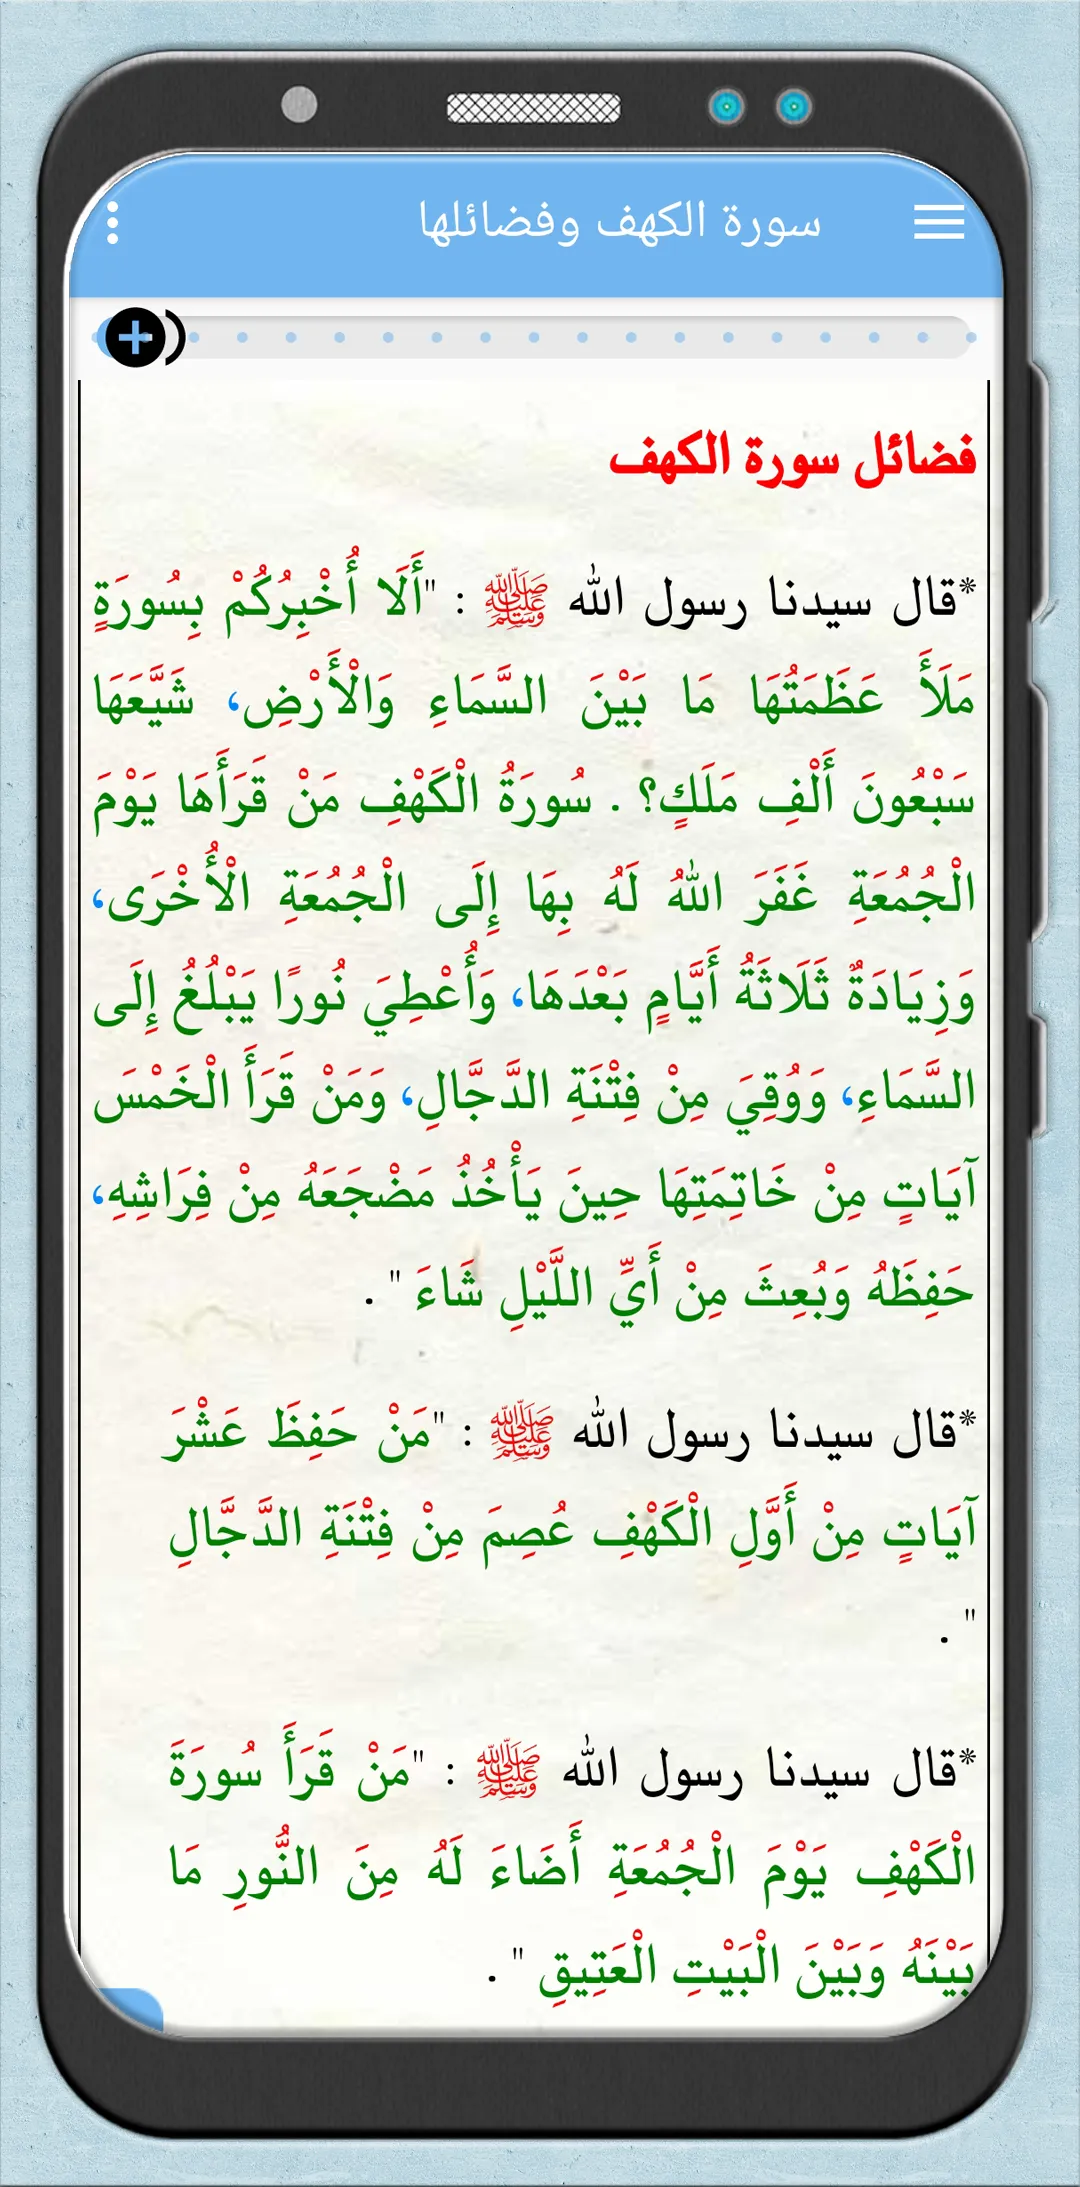 سورة الكهف وفضائلها
فضائل سورة الكهف
*قال سيدنا رسول الله ﷺ : "أَلَا أُخْبِرُكُمْ بِسُورَةٍ
مَلَأَ عَظَمَتُهَا مَا بَيْنَ السَّمَاءِ وَالْأَرْضِ، شَيَّعَهَا
سَبْعُونَ أَلْفِ مَلَكٍ؟ . سُورَةُ الْكَهْفِ مَنْ قَرَأَهَا يَوْمَ
الْجُمُعَةِ غَفَرَ اللهُ لَهُ بِهَا إِلَى الْجُمُعَةِ الْأُخْرَى،
وَزِيَادَةٌ ثَلَاثَةُ أَيَّامٍ بَعْدَهَا، وَأُعْطِيَ نُورًا يَبْلُغُ إِلَى
السَّمَاءِ، وَوُقِيَ مِنْ فِتْنَةِ الدَّجَّالِ، وَمَنْ قَرَأَ الْخَمْسَ
آيَاتٍ مِنْ خَاتِمَتِهَا حِينَ يَأْخُذُ مَضْجَعَهُ مِنْ فِرَاشِهِ،
حَفِظَهُ وَبُعِثَ مِنْ أَيِّ اللَّيْلِ شَاءَ " .
*قال سيدنا رسول الله ﷺ : "مَنْ حَفِظَ عَشْرَ
آيَاتٍ مِنْ أَوَّلِ الْكَهْفِ عُصِمَ مِنْ فِتْنَةِ الدَّجَّالِ
" .
*قال سيدنا رسول الله ﷺ : "مَنْ قَرَأَ سُورَةَ
الْكَهْفِ يَوْمَ الْجُمُعَةِ أَضَاءَ لَهُ مِنَ النُّورِ مَا
بَيْنَهُ وَبَيْنَ الْبَيْتِ الْعَتِيقِ " .